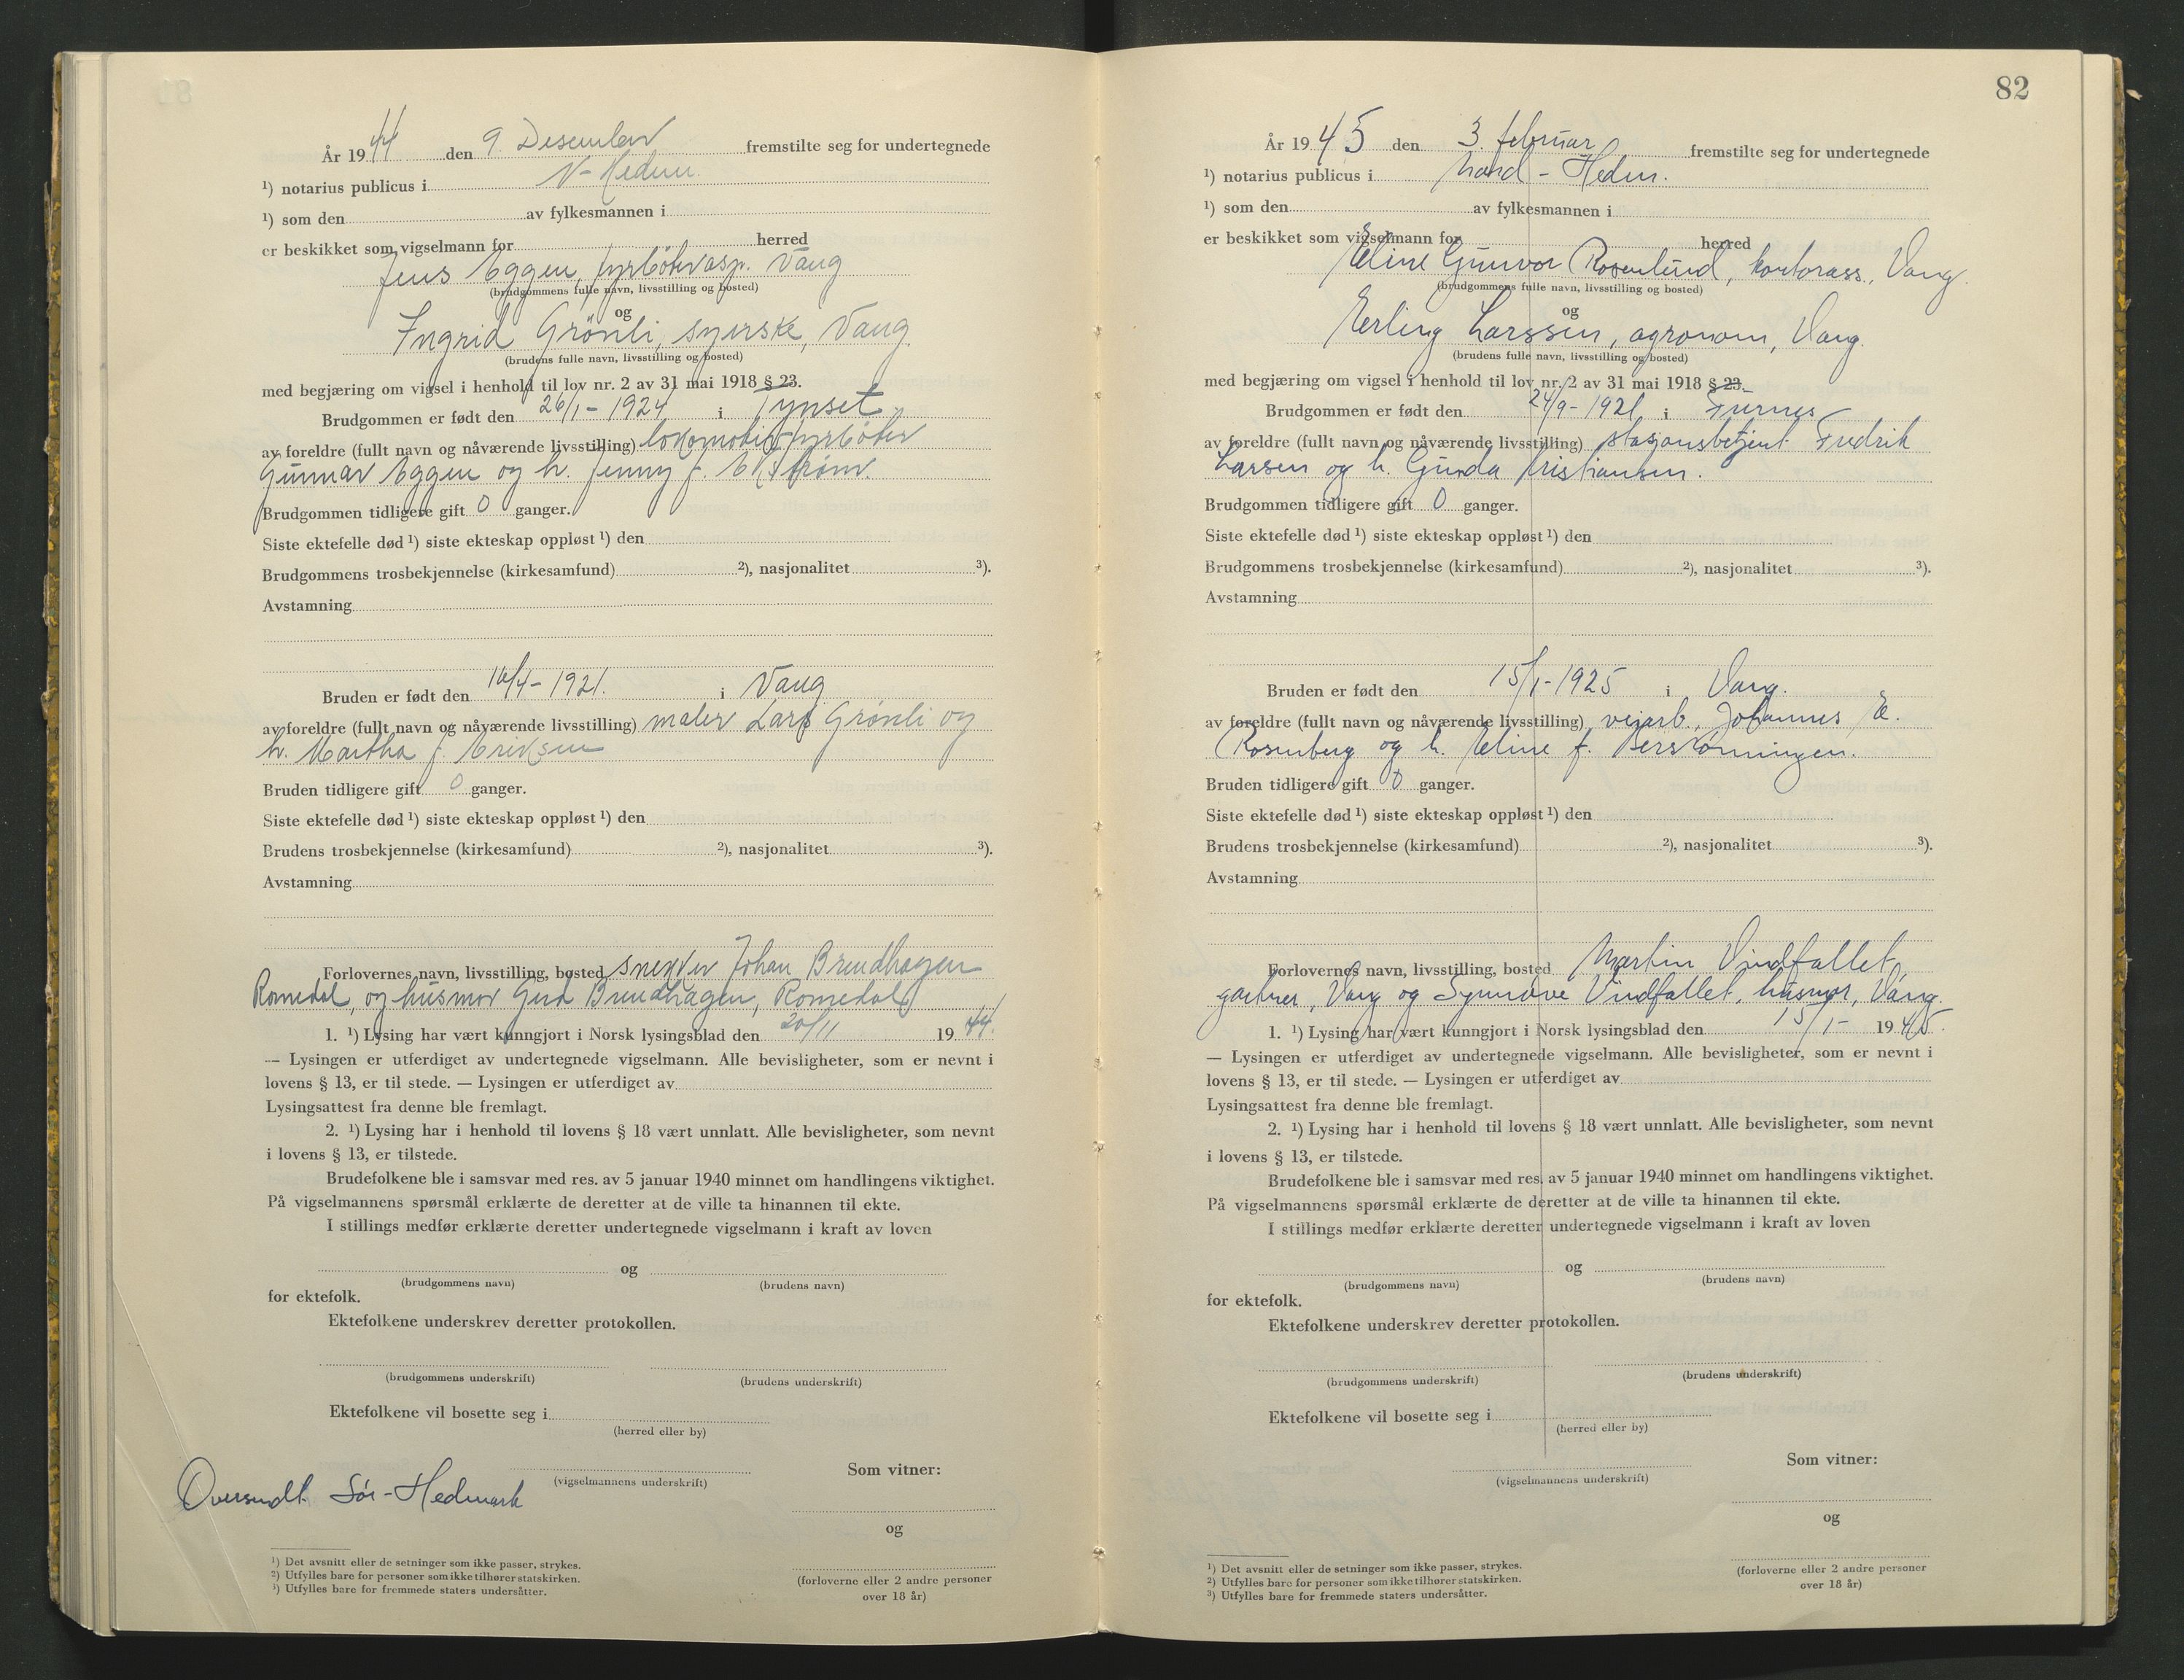 År 1944 den 9. Desember fremstilte seg for undertegnede
¹) notarius publicus i N-Hedm.
¹) som den av fylkesmannen i
er beskikket som vigselmann for herred
Jens Eggen, fyrbøterasp. Vang
(brudgommens fulle navn, livsstilling og bosted)
og
Ingrid Grönli, syerske, Vang.
(brudens fulle navn, livsstilling og bosted)
med begjæring om vigsel i henhold til lov nr. 2 av 31 mai 1918 § 23.
Brudgommen er født den 26/1-1924 i Tynset
av foreldre (fullt navn og nåværende livsstilling) lokomotivfyrbøter
Gunnar Eggen og h. Jenny f. Ekstrøm.
Brudgommen tidligere gift 0 ganger.
Siste ektefelle død ¹) siste ekteskap oppløst ¹) den
Brudgommens trosbekjennelse (kirkesamfund) ²), nasjonalitet ³).
Avstamning
Bruden er født den 16/4-1921. i Vang
av foreldre (fullt navn og nåværende livsstilling) maler Lars Grönli og
h. Martha f. Eriksen
Bruden tidligere gift 0 ganger.
Siste ektefelle død ¹) siste ekteskap oppløst ¹) den
Brudens trosbekjennelse (kirkesamfund) ²), nasjonalitet ³).
Avstamning
Forlovernes navn, livsstilling, bosted snekker Johan Brendhagen
Romedal, og husmor Gerd Brendhagen, Romedal
1. ¹) Lysing har vært kunngjort i Norsk lysingsblad den 20/11 1944.
— Lysingen er utferdiget av undertegnede vigselmann. Alle bevisligheter, som er nevnt i
lovens § 13, er til stede. — Lysingen er utferdiget av
Lysingsattest fra denne ble fremlagt.
2. ¹) Lysing har i henhold til lovens § 18 vært unnlatt. Alle bevisligheter, som nevnt
i lovens § 13, er tilstede.
Brudefolkene ble i samsvar med res. av 5 januar 1940 minnet om handlingens viktighet.
På vigselmannens spørsmål erklærte de deretter at de ville ta hinannen til ekte.
I stillings medfør erklærte deretter undertegnede vigselmann i kraft av loven
og
(brudgommens navn) (brudens navn)
for ektefolk.
Ektefolkene underskrev deretter protokollen.
(brudgommens underskrift) (brudens underskrift)
Ektefolkene vil bosette seg i
(herred eller by)
Som vitner:
(vigselmannens underskrift)
Oversendt Sør-Hedmark
og
¹) Det avsnitt eller de setninger som ikke passer, strykes.
²) Utfylles bare for personer som ikke tilhører statskirken.
³) Utfylles bare for fremmede staters undersåtter.
(forloverne eller 2 andre personer
over 18 år)
82
År 1945 den 3. februar fremstilte seg for undertegnede
¹) notarius publicus i Nord-Hedm.
¹) som den av fylkesmannen i
er beskikket som vigselmann for herred
Eline Gunvor Rosenlund, kontorass., Vang.
(brudgommens fulle navn, livsstilling og bosted)
og
Erling Larssen, agronom, Vang.
(brudens fulle navn, livsstilling og bosted)
med begjæring om vigsel i henhold til lov nr. 2 av 31 mai 1918 § 23.
Brudgommen er født den 24/9-1921 i Furnes
av foreldre (fullt navn og nåværende livsstilling) stasjonsbetjent Fredrik
Larsen og h. Gunda Kristiansen.
Brudgommen tidligere gift 0 ganger.
Siste ektefelle død ¹) siste ekteskap oppløst ¹) den
Brudgommens trosbekjennelse (kirkesamfund) ²), nasjonalitet ³).
Avstamning
Bruden er født den 15/1-1925 i Vang.
av foreldre (fullt navn og nåværende livsstilling) veiarb. Johannes E.
Rosenberg og h. Eline f.
Bruden tidligere gift 0 ganger.
Siste ektefelle død ¹) siste ekteskap oppløst ¹) den
Brudens trosbekjennelse (kirkesamfund) ²), nasjonalitet ³).
Avstamning
Forlovernes navn, livsstilling, bosted Martin Vindfallet,
gartner, Vang og Synnøve Vindfallet, husmor, Vang.
1. ¹) Lysing har vært kunngjort i Norsk lysingsblad den 15/1- 1945.
— Lysingen er utferdiget av undertegnede vigselmann. Alle bevisligheter, som er nevnt i
lovens § 13, er til stede. — Lysingen er utferdiget av
Lysingsattest fra denne ble fremlagt.
2. ¹) Lysing har i henhold til lovens § 18 vært unnlatt. Alle bevisligheter, som nevnt
i lovens § 13, er tilstede.
Brudefolkene ble i samsvar med res. av 5 januar 1940 minnet om handlingens viktighet.
På vigselmannens spørsmål erklærte de deretter at de ville ta hinannen til ekte.
I stillings medfør erklærte deretter undertegnede vigselmann i kraft av loven
og
(brudgommens navn) (brudens navn)
for ektefolk.
Ektefolkene underskrev deretter protokollen.
(brudgommens underskrift) (brudens underskrift)
Ektefolkene vil bosette seg i
(herred eller by)
Som vitner:
(vigselmannens underskrift)
og
¹) Det avsnitt eller de setninger som ikke passer, strykes.
²) Utfylles bare for personer som ikke tilhører statskirken.
³) Utfylles bare for fremmede staters undersåtter.
(forloverne eller 2 andre personer
over 18 år)